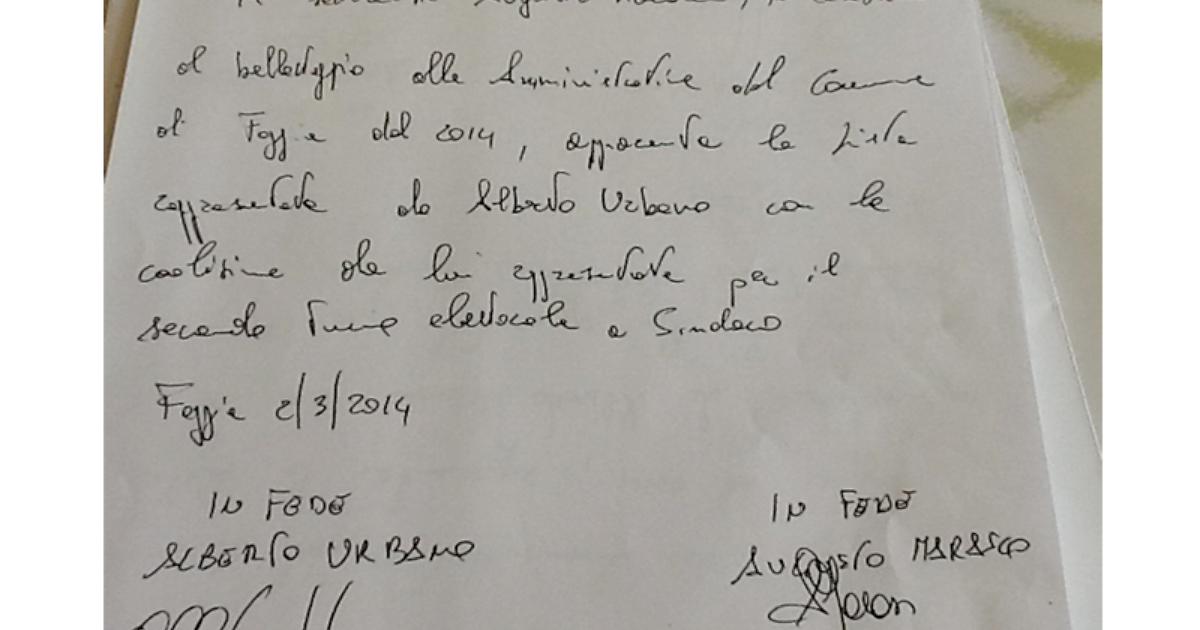 Il sottoscritto Augusto Marasco, in caso
di ballottaggio alle Amministrative del Comune
di Foggia del 2014, apparenta la lista
rappresentata da Alberto Urbano con la
coalizione da lui rappresentata per il
secondo turno elettorale a Sindaco
Foggia 2/3/2014
IN FEDE
ALBERTO URBANO
IN FEDE
AUGUSTO MARASCO